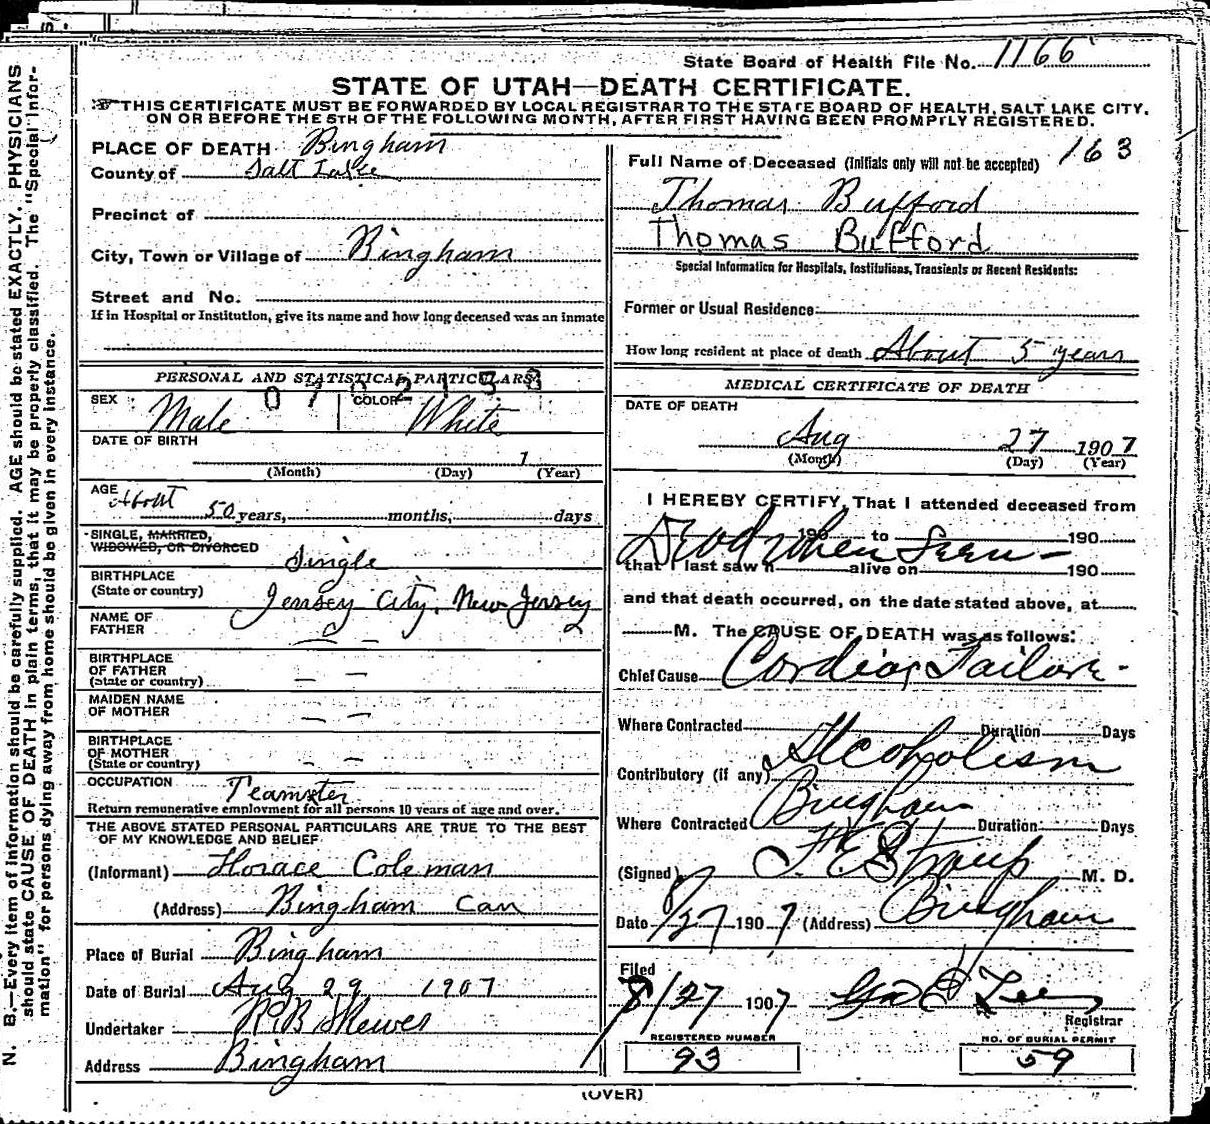 State Board of Health File No. 1166
STATE OF UTAH—DEATH CERTIFICATE.
THIS CERTIFICATE MUST BE FORWARDED BY LOCAL REGISTRAR TO THE STATE BOARD OF HEALTH, SALT LAKE CITY,
ON OR BEFORE THE 5TH OF THE FOLLOWING MONTH, AFTER FIRST HAVING BEEN PROMPTLY REGISTERED.
N. B.—Every item of information should be carefully supplied. AGE should be stated EXACTLY. PHYSICIANS
should state CAUSE OF DEATH in plain terms, that it may be properly classified. The "Special Infor-
mation" for persons dying away from home should be given in every instance.
PLACE OF DEATH Bingham
County of Salt Lake
Precinct of
City, Town or Village of Bingham
Street and No.
If in Hospital or Institution, give its name and how long deceased was an inmate
PERSONAL AND STATISTICAL PARTICULARS
SEX Male COLOR White
DATE OF BIRTH
1
(Month) (Day) (Year)
AGE About
50 years, months, days
SINGLE, MARRIED,
WIDOWED, OR DIVORCED Single
BIRTHPLACE
(State or country) Jersey City, New Jersey
NAME OF
FATHER — —
BIRTHPLACE
OF FATHER
(State or country) — —
MAIDEN NAME
OF MOTHER — —
BIRTHPLACE
OF MOTHER
(State or country) — —
OCCUPATION Teamster
Return remunerative employment for all persons 10 years of age and over.
THE ABOVE STATED PERSONAL PARTICULARS ARE TRUE TO THE BEST
OF MY KNOWLEDGE AND BELIEF
(Informant) Horace Coleman
(Address) Bingham Can
Place of Burial Bingham
Date of Burial Aug 29 1907
Undertaker R.B Skewes
Address Bingham
163
Full Name of Deceased (Initials only will not be accepted)
Thomas Bufford
Thomas Bufford
Special Information for Hospitals, Institutions, Transients or Recent Residents:
Former or Usual Residence:
How long resident at place of death About 5 years
MEDICAL CERTIFICATE OF DEATH
DATE OF DEATH
Aug 27 1907
(Month) (Day) (Year)
I HEREBY CERTIFY, That I attended deceased from
190 to 190
Dead when Seen —
that I last saw h alive on 190
and that death occurred, on the date stated above, at
M. The CAUSE OF DEATH was as follows:
Chief Cause Cordiac Failure -
Where Contracted Duration Days
Contributory (if any) Alcoholism
Where Contracted Bingham Duration Days
(Signed) F E Straup M. D.
Date 8/27 1907 (Address) Bingham
Filed
8/27 1907 Geo Lee
Registrar
REGISTERED NUMBER
93
NO. OF BURIAL PERMIT
59
(OVER)